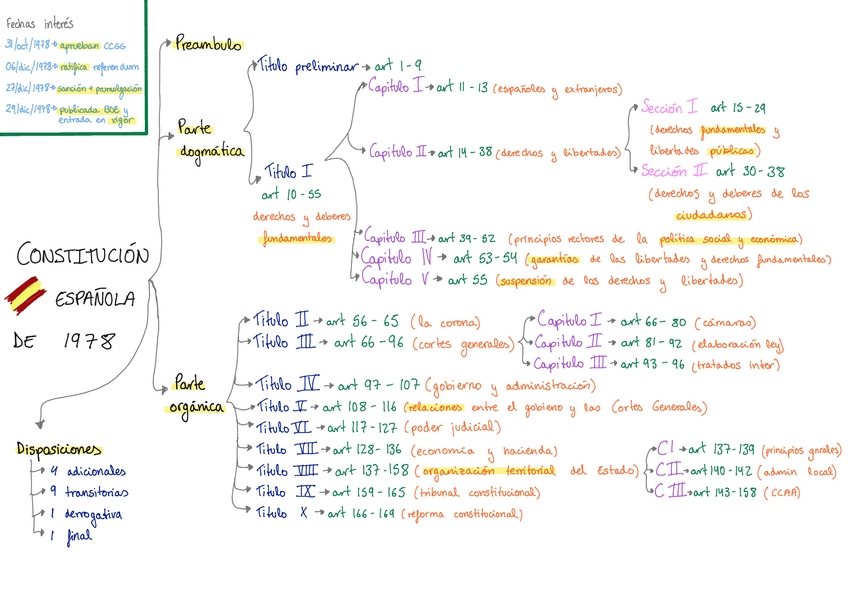 Fechas interés
31/oct/1978 → aprueban CCGG
06/dic/1978 → ratifica referendum
27/dic/1978 → sanción + promulgación
29/dic/1978 → publicada BOE y
entrada en vigor
CONSTITUCIÓN
ESPAÑOLA
DE 1978
Preambulo
Parte
dogmática
Titulo preliminar → art 1-9
Titulo I
art 10-55
derechos y deberes
fundamentales
Capitulo I → art 11-13 (españoles y extranjeros)
Capitulo II → art 14-38 (derechos y libertades)
Sección I art 15-29
(derechos fundamentales y
libertades públicas)
Sección II art 30-38
(derechos y deberes de los
ciudadanos)
Capitulo III → art 39-52 (principios rectores de la politica social y económica)
Capitulo IV → art 53-54 (garantías de las libertades y derechos fundamentales)
Capitulo V → art 55 (suspensión de los derechos y libertades)
Parte
orgánica
Titulo II → art 56-65 (la corona)
Titulo III → art 66-96 (cortes generales)
Capitulo I → art 66-80 (cámaras)
Capitulo II → art 81-92 (elaboración ley)
Capitulo III → art 93-96 (tratados inter)
Titulo IV → art 97-107 (gobierno y administración)
Titulo V → art 108-116 (relaciones entre el gobieno y las Cortes Generales)
Titulo VI → art 117-127 (poder judicial)
Titulo VII → art 128-136 (economía y hacienda)
Titulo VIII → art 137-158 (organización territorial del Estado)
CI → art 137-139 (principios gnrales)
CII → art 140-142 (admin local)
CIII → art 143-158 (CCAA)
Titulo IX → art 159-165 (tribunal constitucional)
Titulo X → art 166-169 (reforma constitucional)
Disposiciones
4 adicionales
9 transitorias
1 derrogativa
1 final